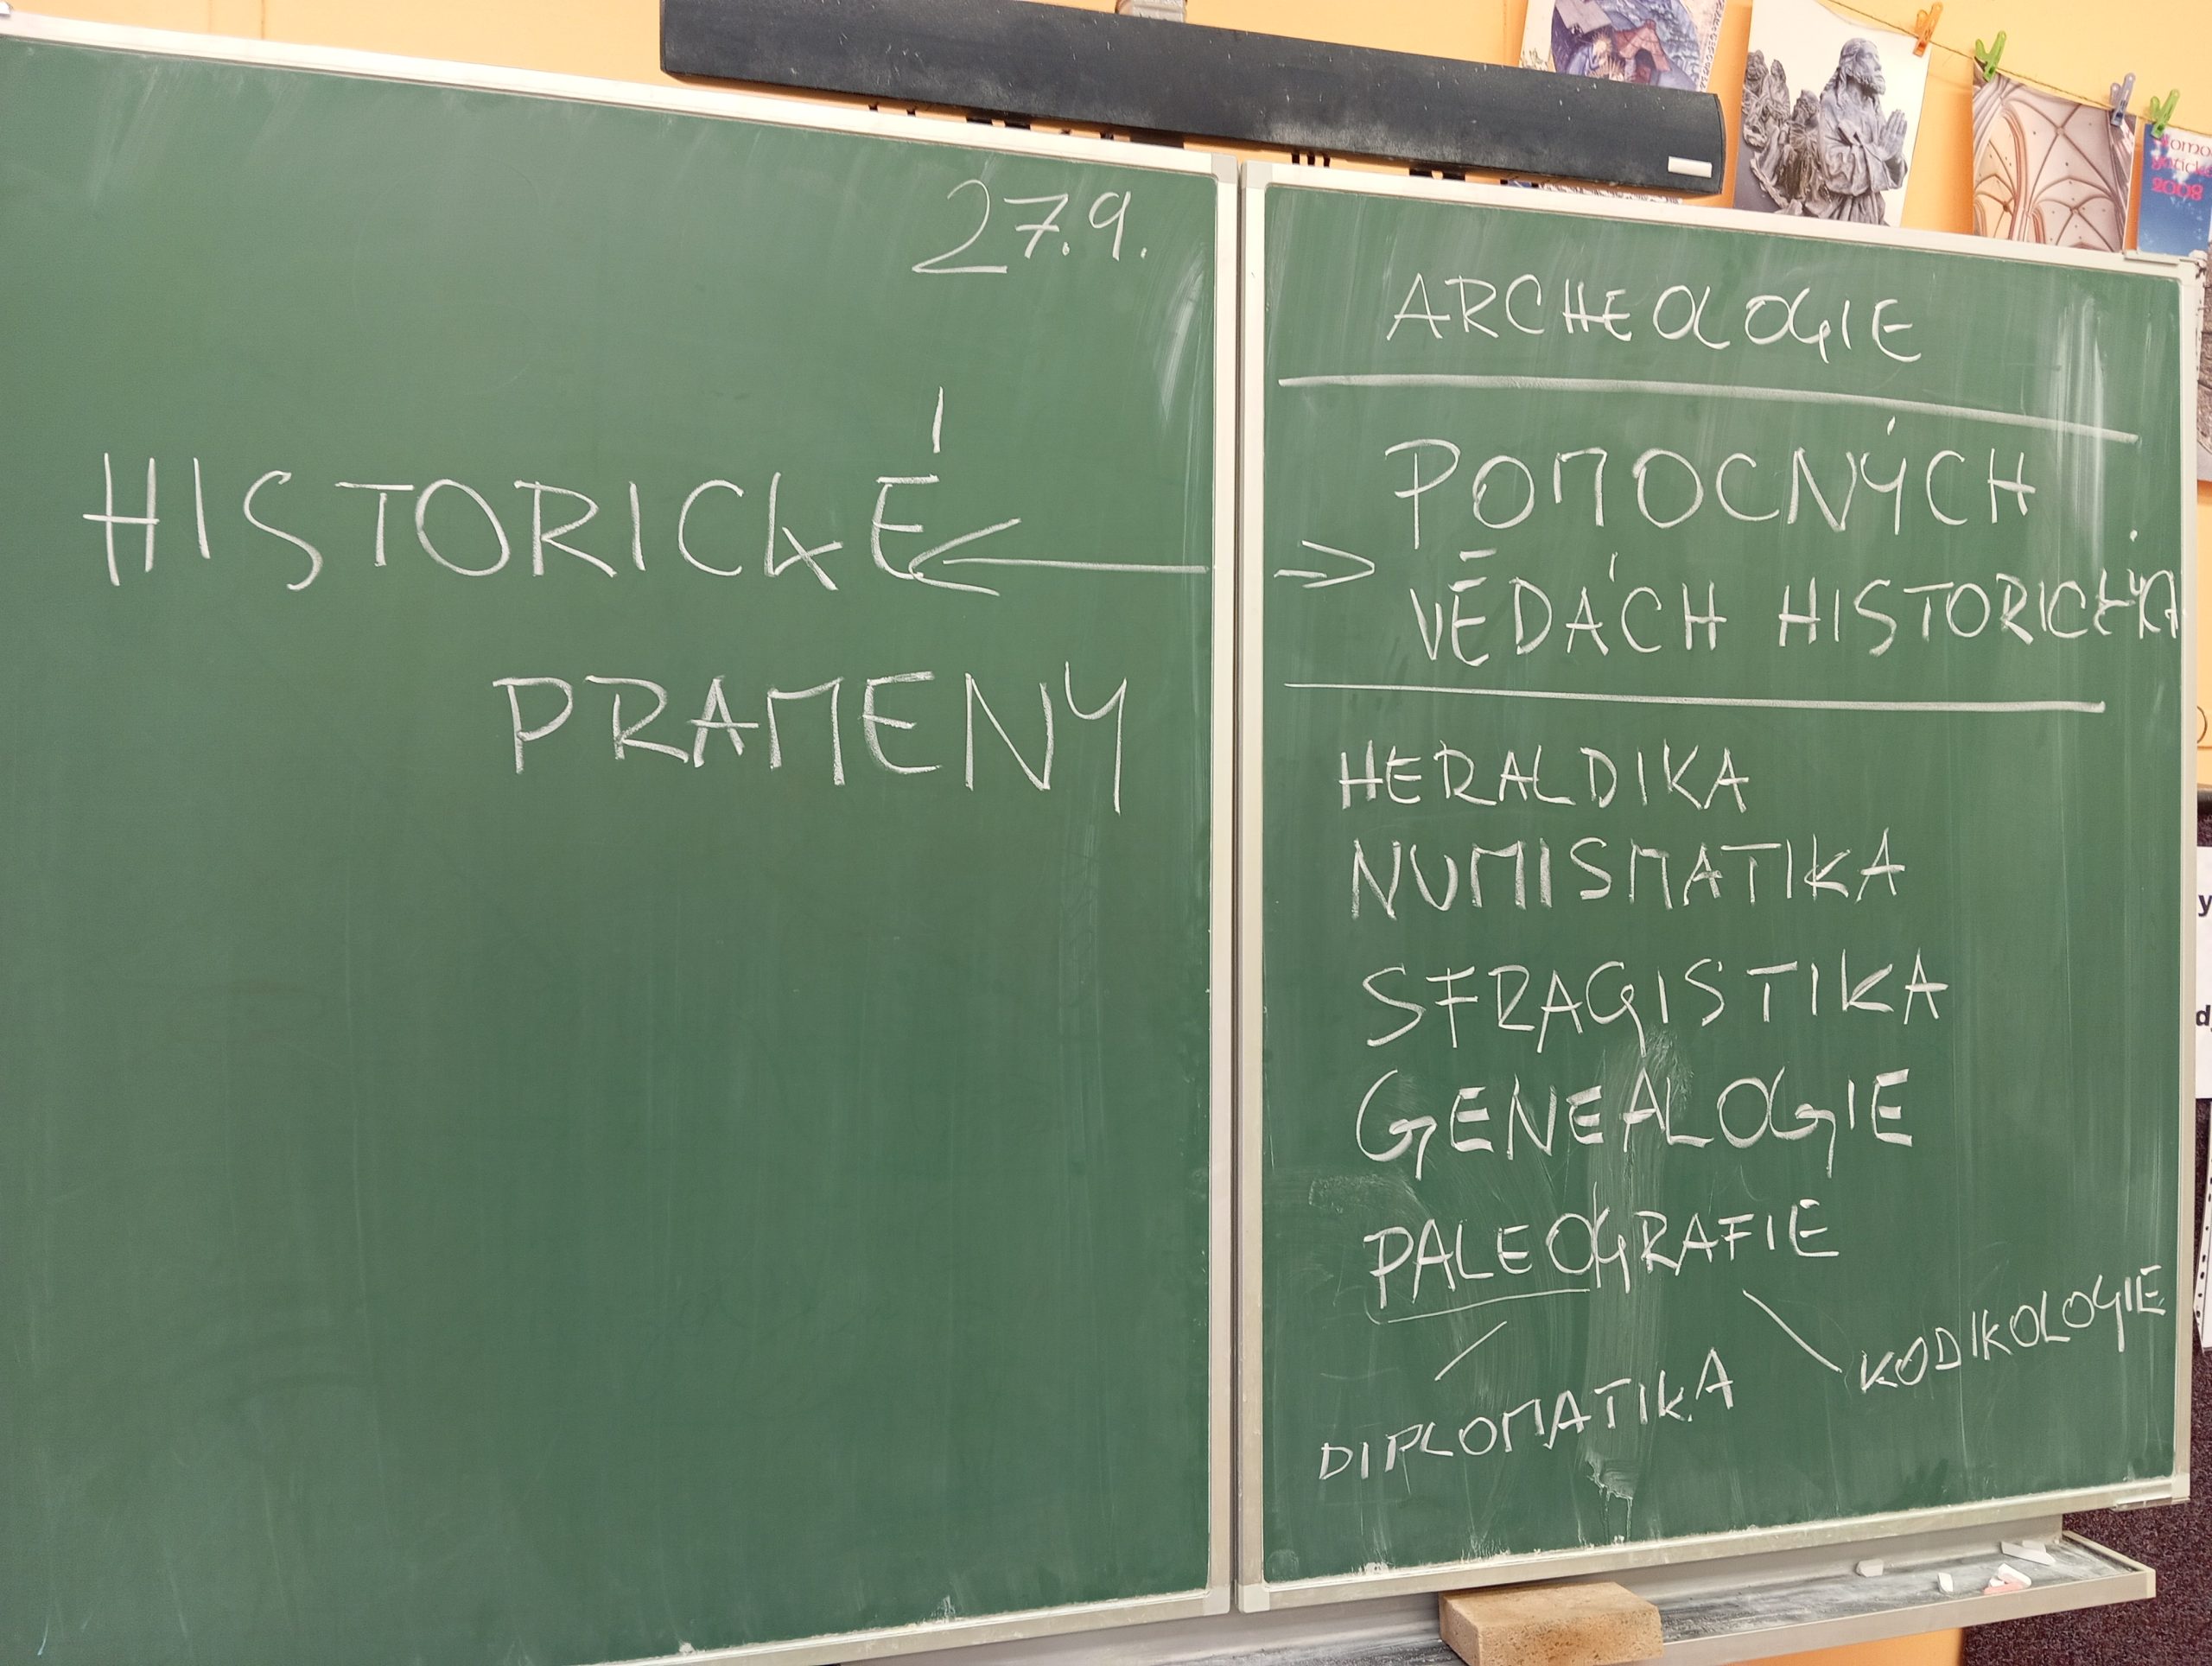 27.9.
HISTORICKÉ
PRAMENY
ARCHEOLOGIE
POMOCNÝCH
VĚDÁCH HISTORICKÝCH
HERALDIKA
NUMISMATIKA
SFRAGISTIKA
GENEALOGIE
PALEOGRAFIE
KODIKOLOGIE
DIPLOMATIKA
2008